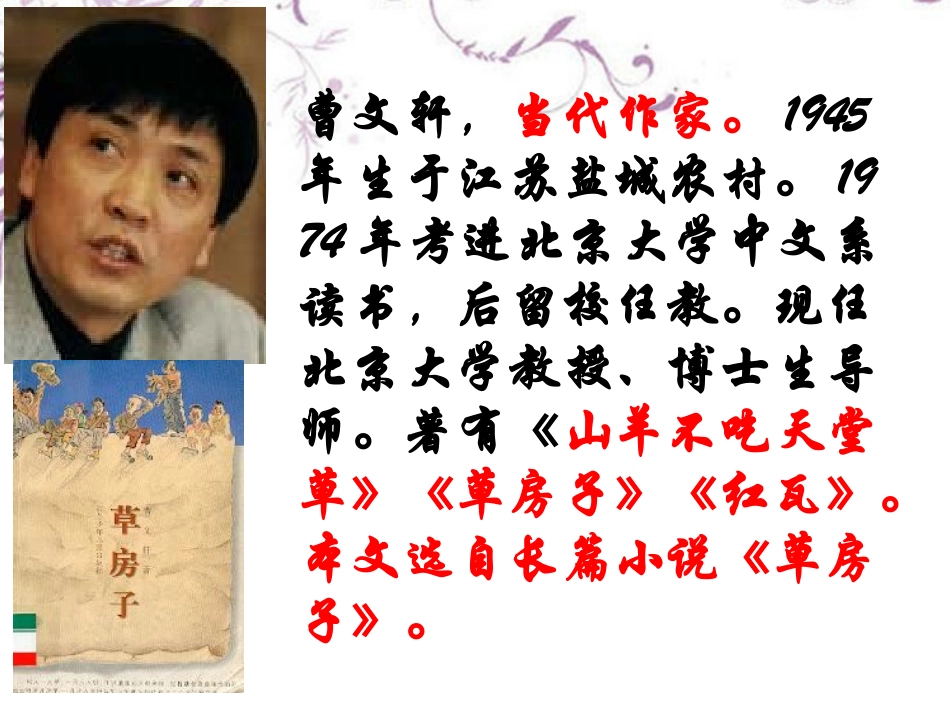 曹文轩，当代作家。1945
年生于江苏盐城农村。19
74年考进北京大学中文系
读书，后留校任教。现任
北京大学教授、博士生导
师。著有《山羊不吃天堂
草》《草房子》《红瓦》。
本文选自长篇小说《草房
子》。
草房子